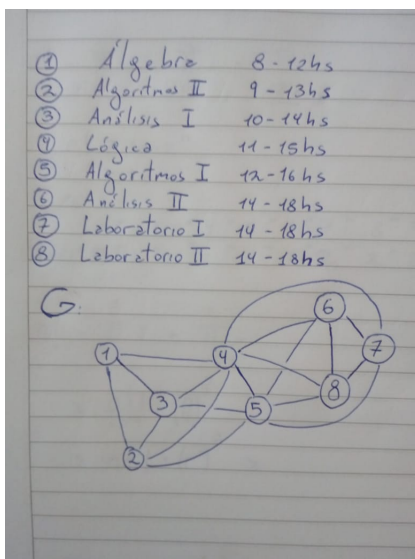 ① Álgebra 8-12hs
② Algoritmos II 9-13hs
③ Análisis I 10-14hs
④ Lógica 11-15hs
⑤ Algoritmos I 12-16hs
⑥ Análisis II 14-18hs
⑦ Laboratorio I 14-18hs
⑧ Laboratorio II 14-18hs
G:
6
7
1
4
3
8
5
2